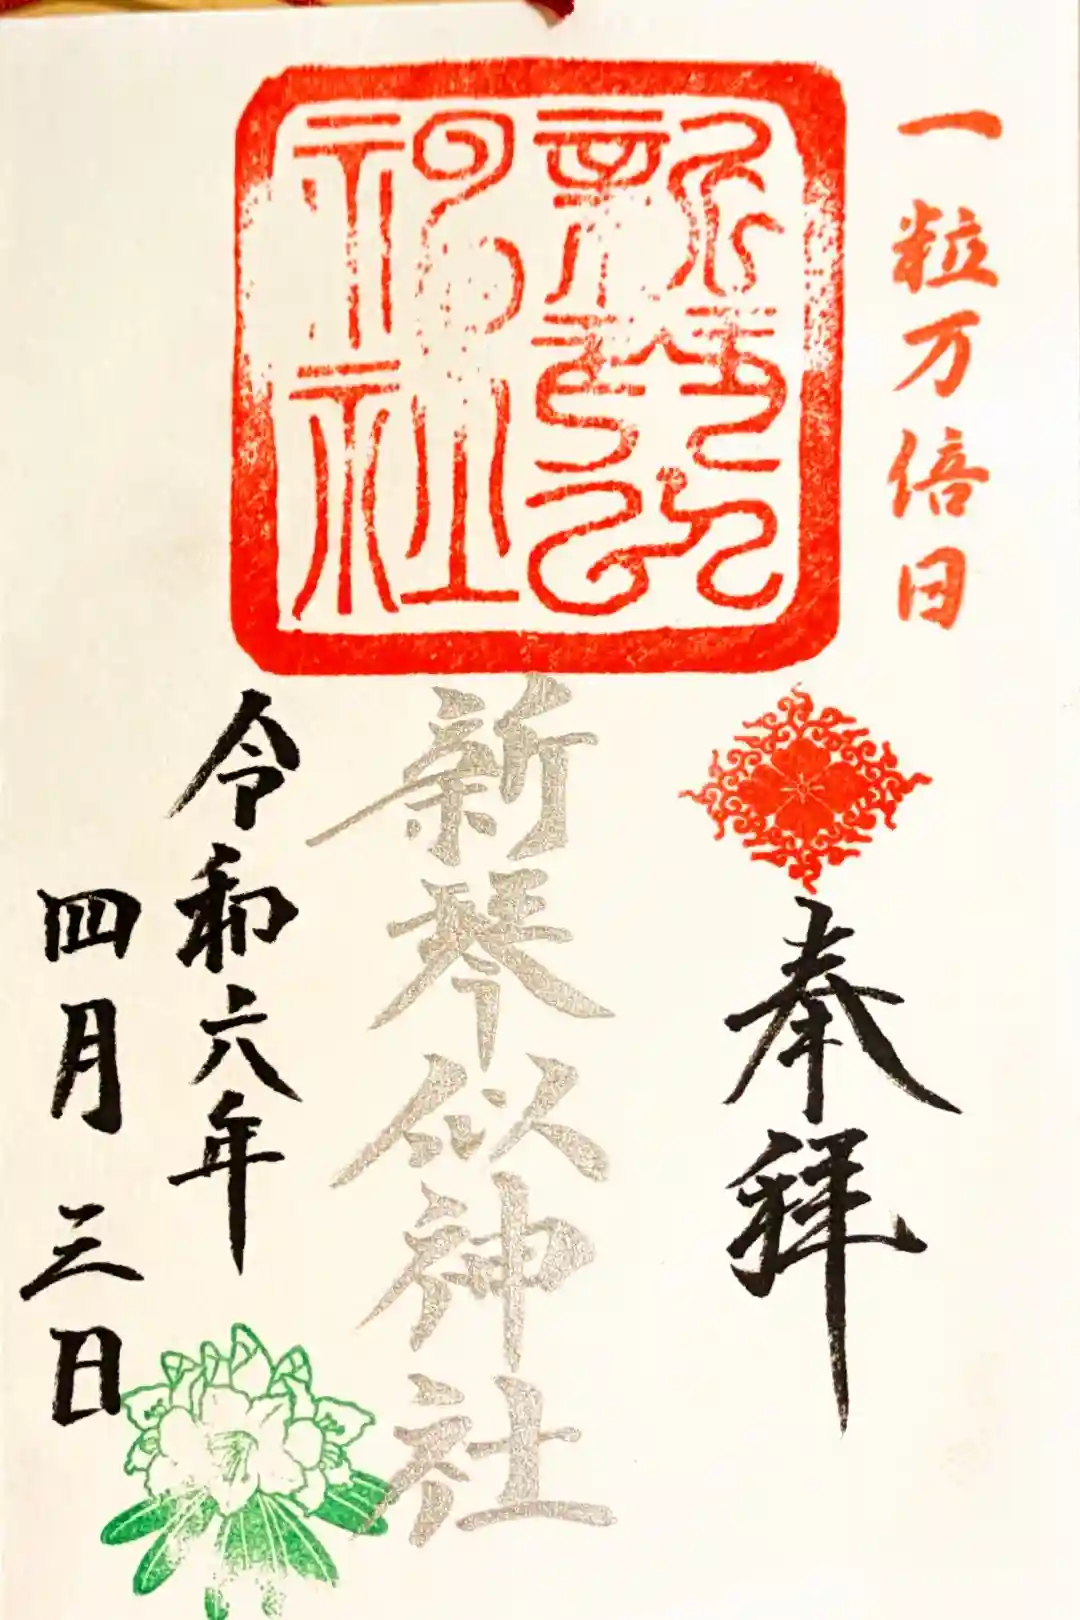 一粒万倍日
奉拝
新琴似神社
新琴似神社
令和六年
四月三日